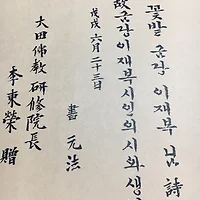 꽃발 금강 이재부 님 詩
故금강이재부시인의 시와 생
戊戌 六月 二十三日
書 元法
大田佛敎 硏修院長
李東榮 贈